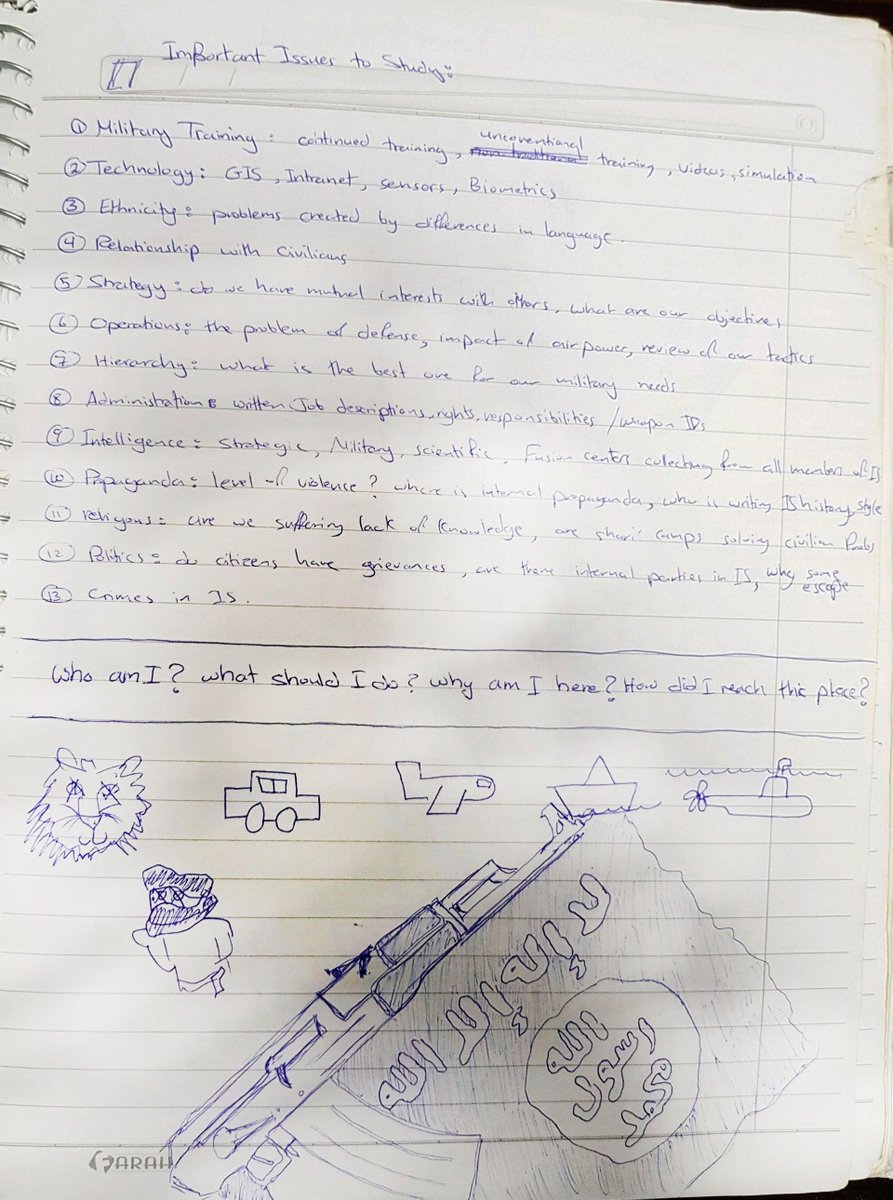 Important Issues to Study:
① Military Training: continued training, unconventional training, videos, simulation
② Technology: GIS, Intranet, sensors, Biometrics
③ Ethnicity: problems created by differences in language.
④ Relationship with civilians
⑤ Strategy: do we have mutual interests with others, what are our objectives
⑥ Operations: the problem of defense, impact of airpower, review of our tactics
⑦ Hierarchy: what is the best one for our military needs
⑧ Administration: written Job descriptions, rights, responsibilities / weapon IDs
⑨ Intelligence: strategic, Military, scientific, Fusion centers collecting from all members of IS
⑩ Propaganda: level of violence? where is internal propaganda, who is writing IS history, style
⑪ religious: are we suffering lack of knowledge, are shari' camps solving civilian Probs
⑫ Politics: do citizens have grievances, are there internal parties in IS, why some escape
⑬ Crimes in IS.
Who am I? what should I do? why am I here? How did I reach this place?
لا إله إلا الله
الله
رسول
محمد
FARAH